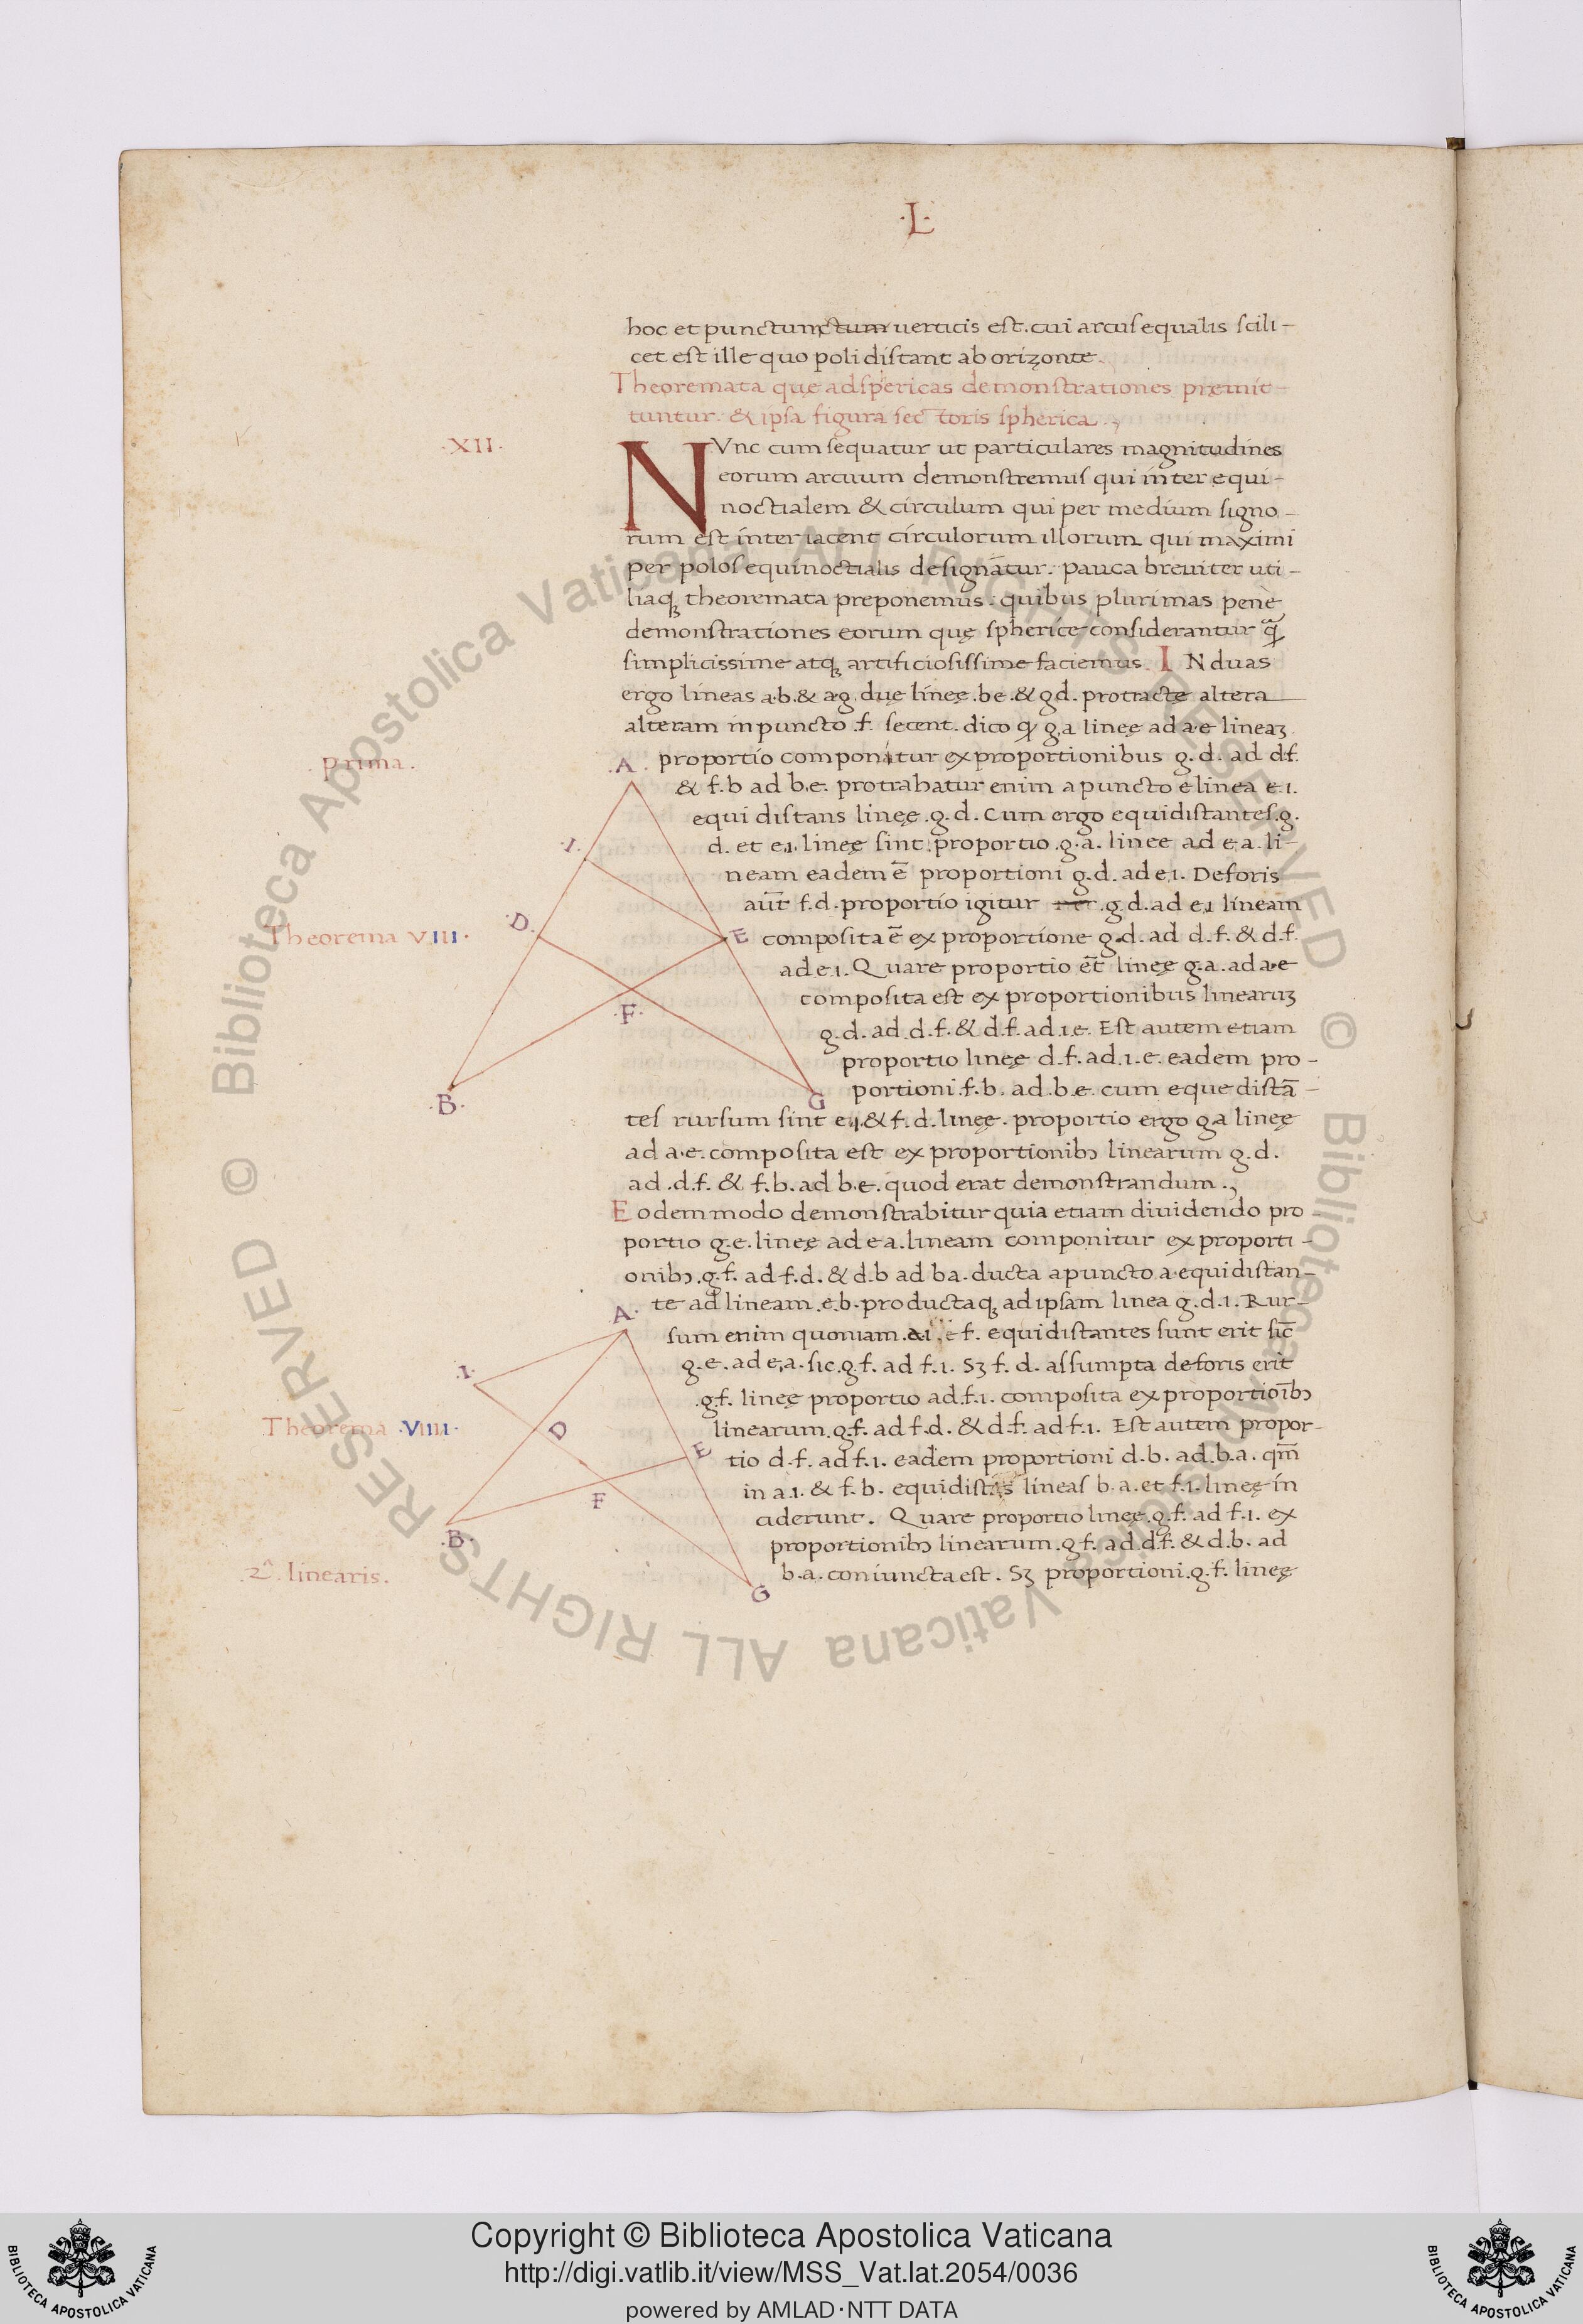 ·L·
hoc et punctum ctum verticis est. cui arcus equalis scili-
cet est ille quo poli distant ab orizonte.
Theoremata quę ad spericas demonstrationes premit-
tuntur. & ipsa figura sec toris spherica.
·XII·
NVnc cum sequatur ut particulares magnitudines
eorum arcuum demonstremus qui inter equi-
noctialem & circulum qui per medium signo-
rum est inter iacent circulorum illorum qui maximi
per polos equinoctialis designãtur. pauca breviter uti-
liaqꝫ theoremata preponemus. quibus plurimas pene
demonstrationes eorum quę spherice considerantur
simplicissime atqꝫ artificiosissime faciemus. IN duas
ergo lineas a.b. & a.g. duę linęę .be. & gd. protractę altera
alteram in puncto .f. secent. dico ꝙ g.a linęę ad a.e lineaꝫ
prima.
proportio componatur ex proportionibus g.d. ad df.
& f.b ad b.e. protrahatur enim a puncto e linea e.i.
equi distans linęę .g.d. Cum ergo equidistantes .g.
d. et e.i. linęę sint. proportio .g.a. linee ad e a. li-
neam eadem ē proportioni g.d. ad e.i. Deforis
aut̄ f.d. proportio igitur .g.d. ad e.i lineam
Theorema VIII·
composita ē ex proportione g.d. ad d.f. & d.f.
ad e.i. Quare proportio et̄ linęę g.a. ad a.e
composita est ex proportionibus linearuꝫ
g.d. ad d.f. & d.f. ad .i.e. Est autem etiam
proportio linęę d.f. ad .i.e. eadem pro-
portioni .f.b. ad .b.e. cum eque distā-
tes rursum sint e.i. & f.d. linęę. proportio ergo g.a linęę
ad a.e. composita est ex proportionibꝯ linearum g.d.
ad .d.f. & f.b. ad b.e. quod erat demonstrandum.
Eodem modo demonstrabitur quia etiam dividendo pro-
portio g.e. linęę ad e a. lineam componitur ex proporti-
onibꝯ .g.f. ad f.d. & d.b ad b a. ducta a puncto a equidistan-
te ad lineam .e.b. productaqꝫ ad ipsam linea g.d.i. Rur-
sum enim quoniam .a.i. e f. equidistantes sunt erit sic̄
g.e. ad e,a. sic .g.f. ad f.i. Sꝫ f.d. assumpta deforis erit
.g.f. linęę proportio ad .f.i. composita ex proportioībꝯ
Theorema ·VIIII·
linearum .g.f. ad f.d. & d.f. ad f.i. Est autem propor-
tio d.f. ad f.i. eadem proportioni d.b. ad .b.a. qm̄
in a.i. & f.b. equidistīs lineas b.a. et f.i. linęę in
ciderunt. Quare proportio linęę .g.f. ad f.i. ex
proportionibꝯ linearum .g f. ad .d.f. & d.b. ad
2ᵃ. linearis.
b.a. coniuncta est. Sꝫ proportioni .g.f. linęę
·A·
·I·
·D·
E
·F·
·B·
G
A·
·I·
D
E
F
·B·
G
© Biblioteca Apostolica Vaticana ALL RIGHTS RESERVED © Biblioteca Apostolica Vaticana ALL RIGHTS RESERVED
BIBLIOTECA APOSTOLICA VATICANA
Copyright © Biblioteca Apostolica Vaticana
http://digi.vatlib.it/view/MSS_Vat.lat.2054/0036
powered by AMLAD·NTT DATA
BIBLIOTECA APOSTOLICA VATICANA